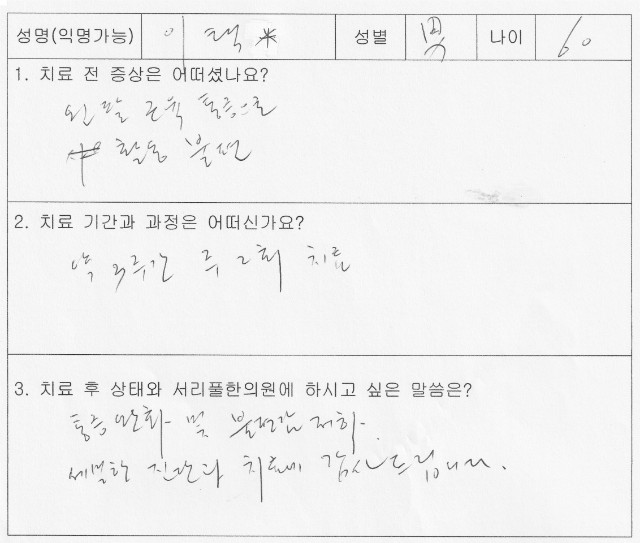 성명(익명가능) 이 택* 성별 男 나이 60
1. 치료 전 증상은 어떠셨나요?
왼팔 근육 통증으로
활동 불편
2. 치료 기간과 과정은 어떠신가요?
약 3주간 주 2회 치료
3. 치료 후 상태와 서리풀한의원에 하시고 싶은 말씀은?
통증 완화 및 불편감 저하.
세밀한 진단과 치료에 감사드립니다.